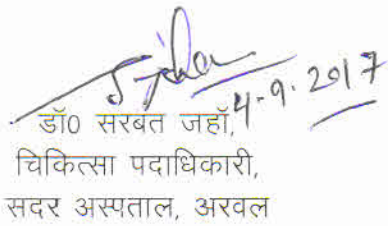 4-9-2017
डॉ0 सरबत जहाँ,
चिकित्सा पदाधिकारी,
सदर अस्पताल, अरवल